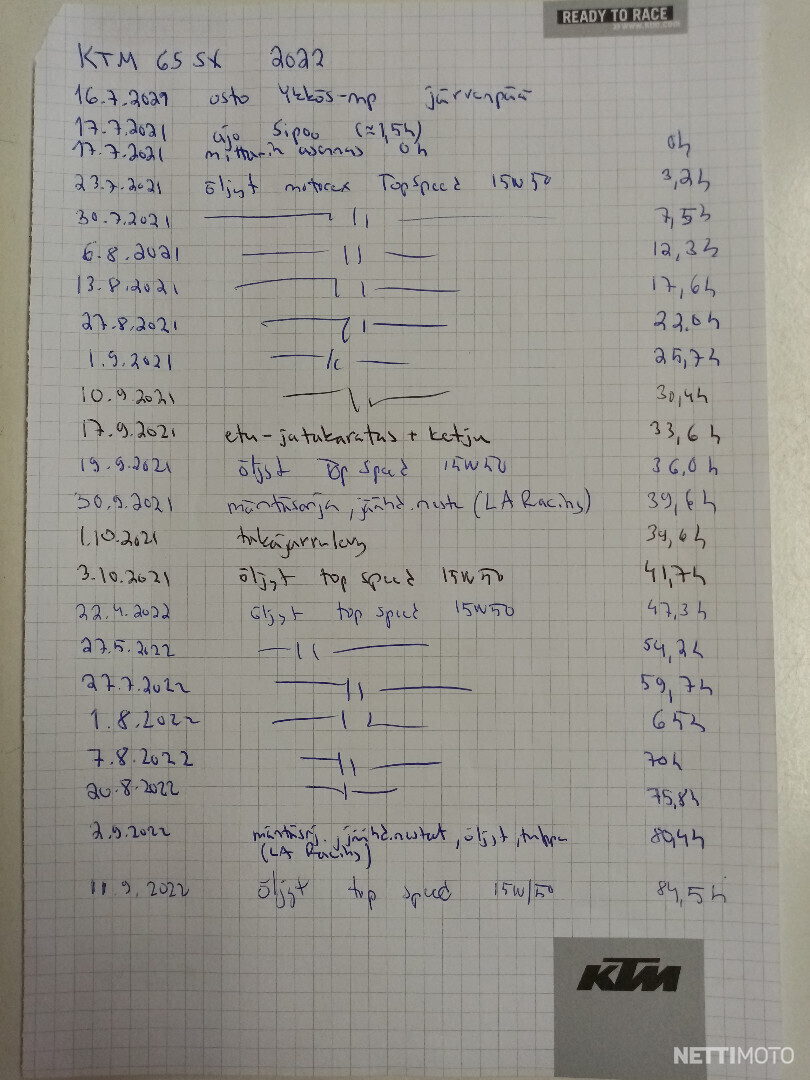 READY TO RACE
www.ktm.com
KTM 65 SX 2022
16.7.2021 osto Ykkös-mp Järvenpää
17.7.2021 ajo Sipoo (≈1,5h)
17.7.2021 mittarin asennus 0h 0h
23.7.2021 öljyt motorex TopSpeed 15W50 3,2h
30.7.2021 —— 11 —— 7,5h
6.8.2021 —— 11 —— 12,3h
13.8.2021 —— 11 —— 17,6h
27.8.2021 —— 11 —— 22.0h
1.9.2021 —— 11 —— 25,7h
10.9.2021 —— 11 —— 30,4h
17.9.2021 etu-jatakaratas + ketju 33,6h
19.9.2021 öljyt Top Speed 15W50 36,0h
30.9.2021 mäntäsarja, jäähd.neste (LA Racing) 39,6h
1.10.2021 takajarrulevy 39,6h
3.10.2021 öljyt top speed 15W50 41,7h
22.4.2022 öljyt top speed 15W50 47,3h
27.5.2022 —— 11 —— 54,2h
27.7.2022 —— 11 —— 59,7h
1.8.2022 —— 11 —— 65h
7.8.2022 —— 11 —— 70h
20.8.2022 —— 11 —— 75,8h
2.9.2022 mäntäsrj., jäähd.nesteet, öljyt, tulppa 80,4h
(LA Racing)
11.9.2022 öljyt top speed 15W/50 84,5h
KTM
NETTIMOTO